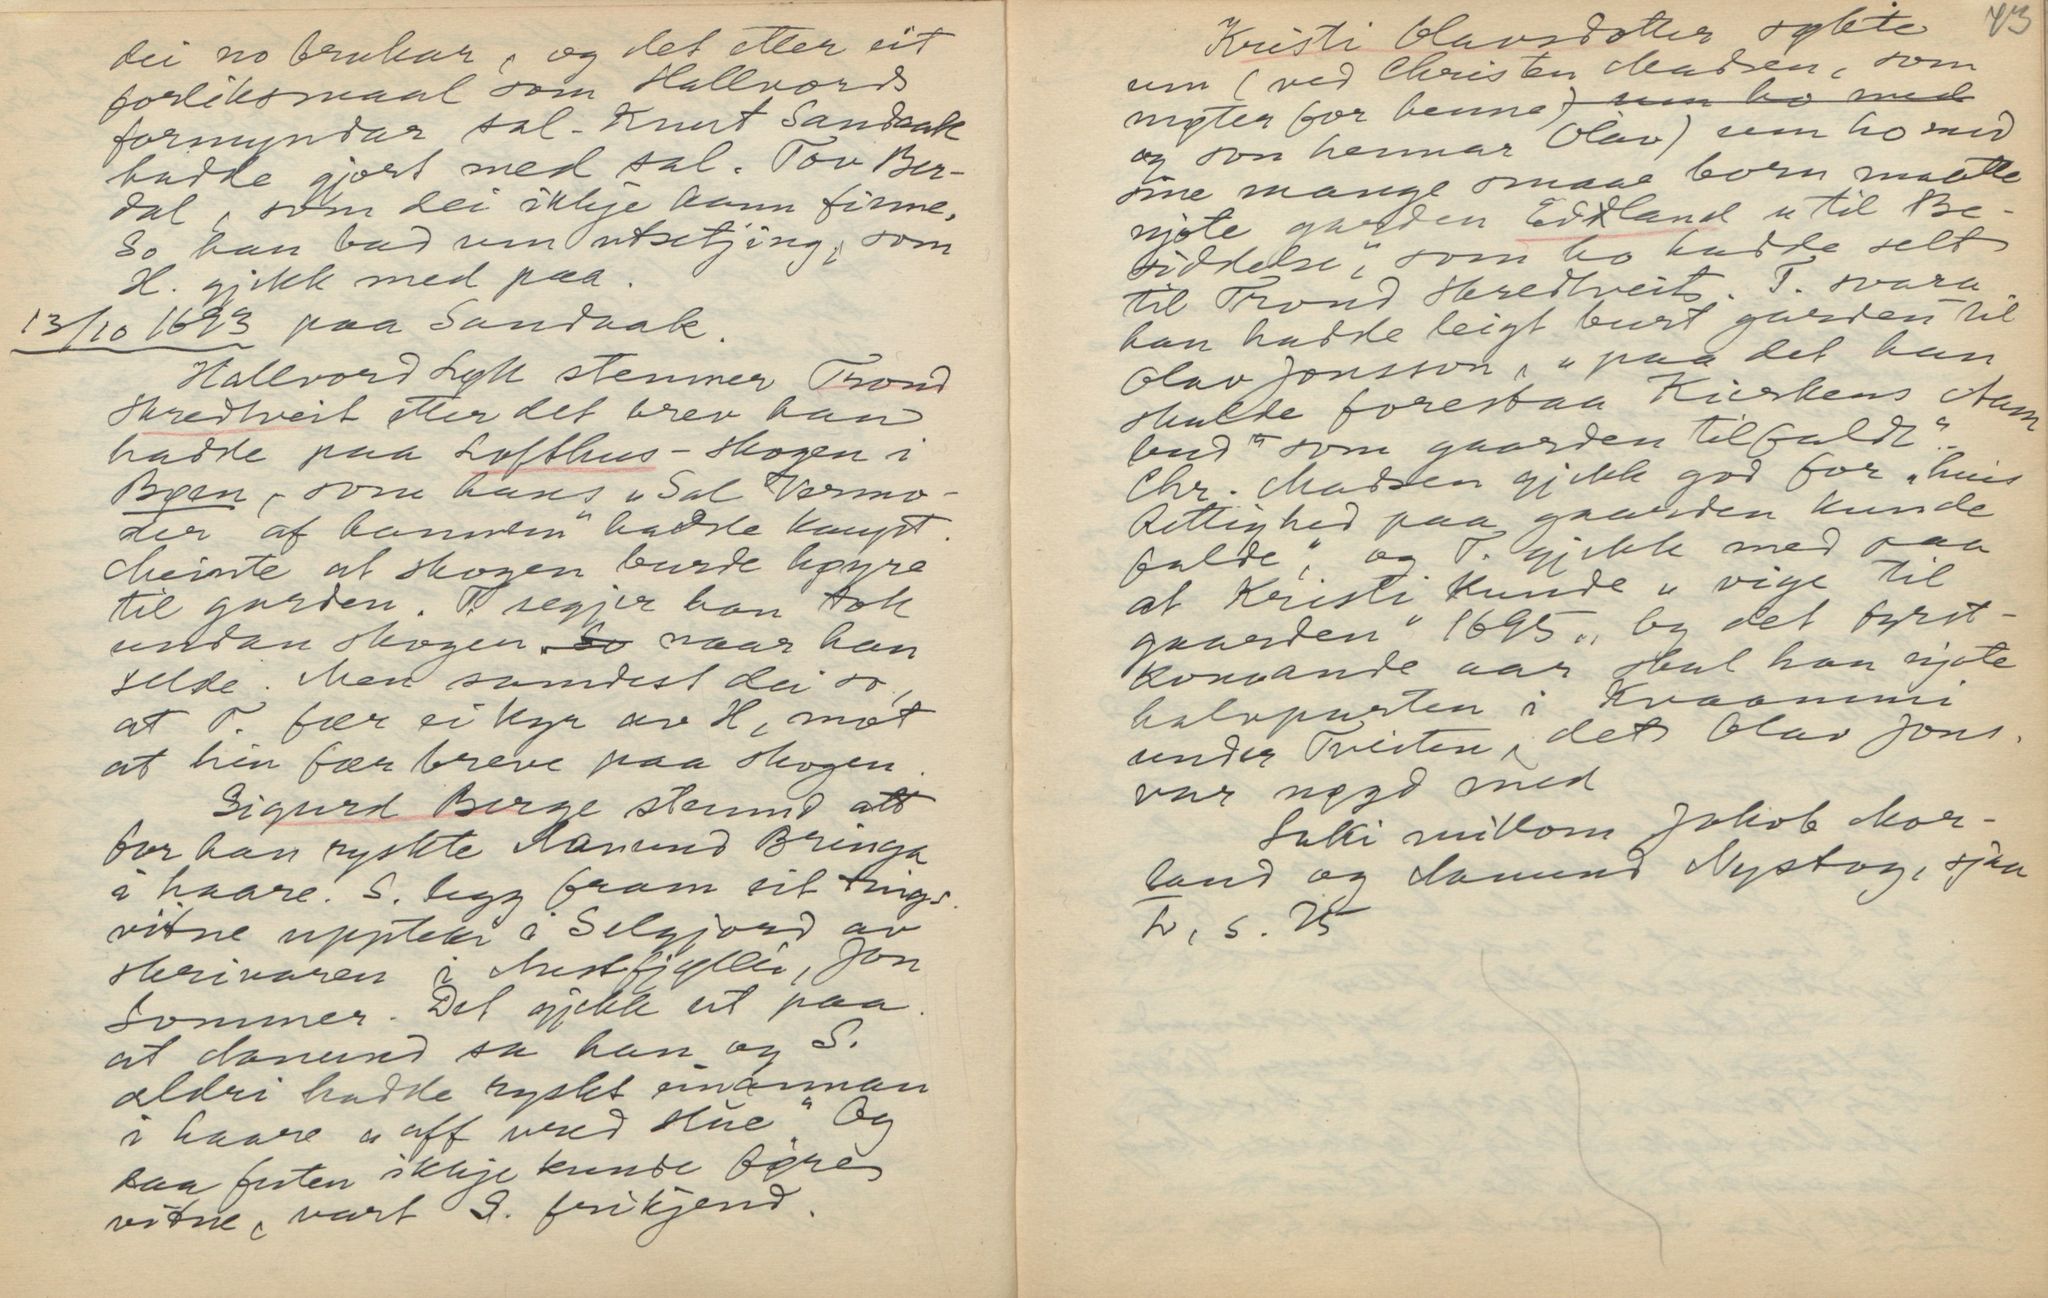 dei no brukar, og det etter eit
forliksmaal som Hallvords
formyndar sal. Knut Sandaak
hadde gjort med sal. Tov Ber-
dal, som dei ikkje kann finne.
So han bad um utsetjing, som
H. gjekk med paa.
13/10 1693 paa Sandaak.
Hallvord Lyk stemner Trond
Skredtveit etter det brev han
hadde paa Lofthus-skogen i
Bøen, som hans "Sal Vermo-
der af bannem" hadde kaupt.
Meinte at skogen burde høyre
til garden. T. segjer han tok
undan skogen. So naar han
selde. Men samdest dei so,
at T. fær ei kyr av H, mot
at hin fær breve paa skogen.
Sigurd Berge stemnd att
for han ryskte Aanund Bringa
i haare. S. legg fram eit tings-
vitne uppteke i Selgjord av
skrivaren i Austfjylli, Jon
Sommer. Det gjekk ut paa
at Aanund sa han og S.
aldri hadde ryskt einannan
i haare "aff vred Hue". Og
daa futen ikkje kunde føre
vitne, vart S. frikjend.
73
Kristi Olavsdotter søkte
um (ved Christen Madsen, som
møter for henne) um ho med
og son hennar Olav) um ho med
sine mange smaae born maatte
njote garden Eddland "til Be-
siddelse", som ho hadde selt
til Trond Skredtveit. T. svara
han hadde leigt burt garden til
Olav Jonsson, "paa det han
skulde forestaa Kierkens Aam
bud" som gaarden tilfaldt".
Chr. Madsen gjekk god for "hvis
Rettighed paa gaarden kunde
falde", og T. gjekk med paa
at Kristi kunde "vige til
gaarden" 1695, "og det fyrst-
komande aar skal han njote
halvparten i Kvaammi
under Tveiten, det Olav Jons.
var nøgd med
Saki millom Jakob Mor-
land og Aanund Nystog, sjaa
L, s. 75